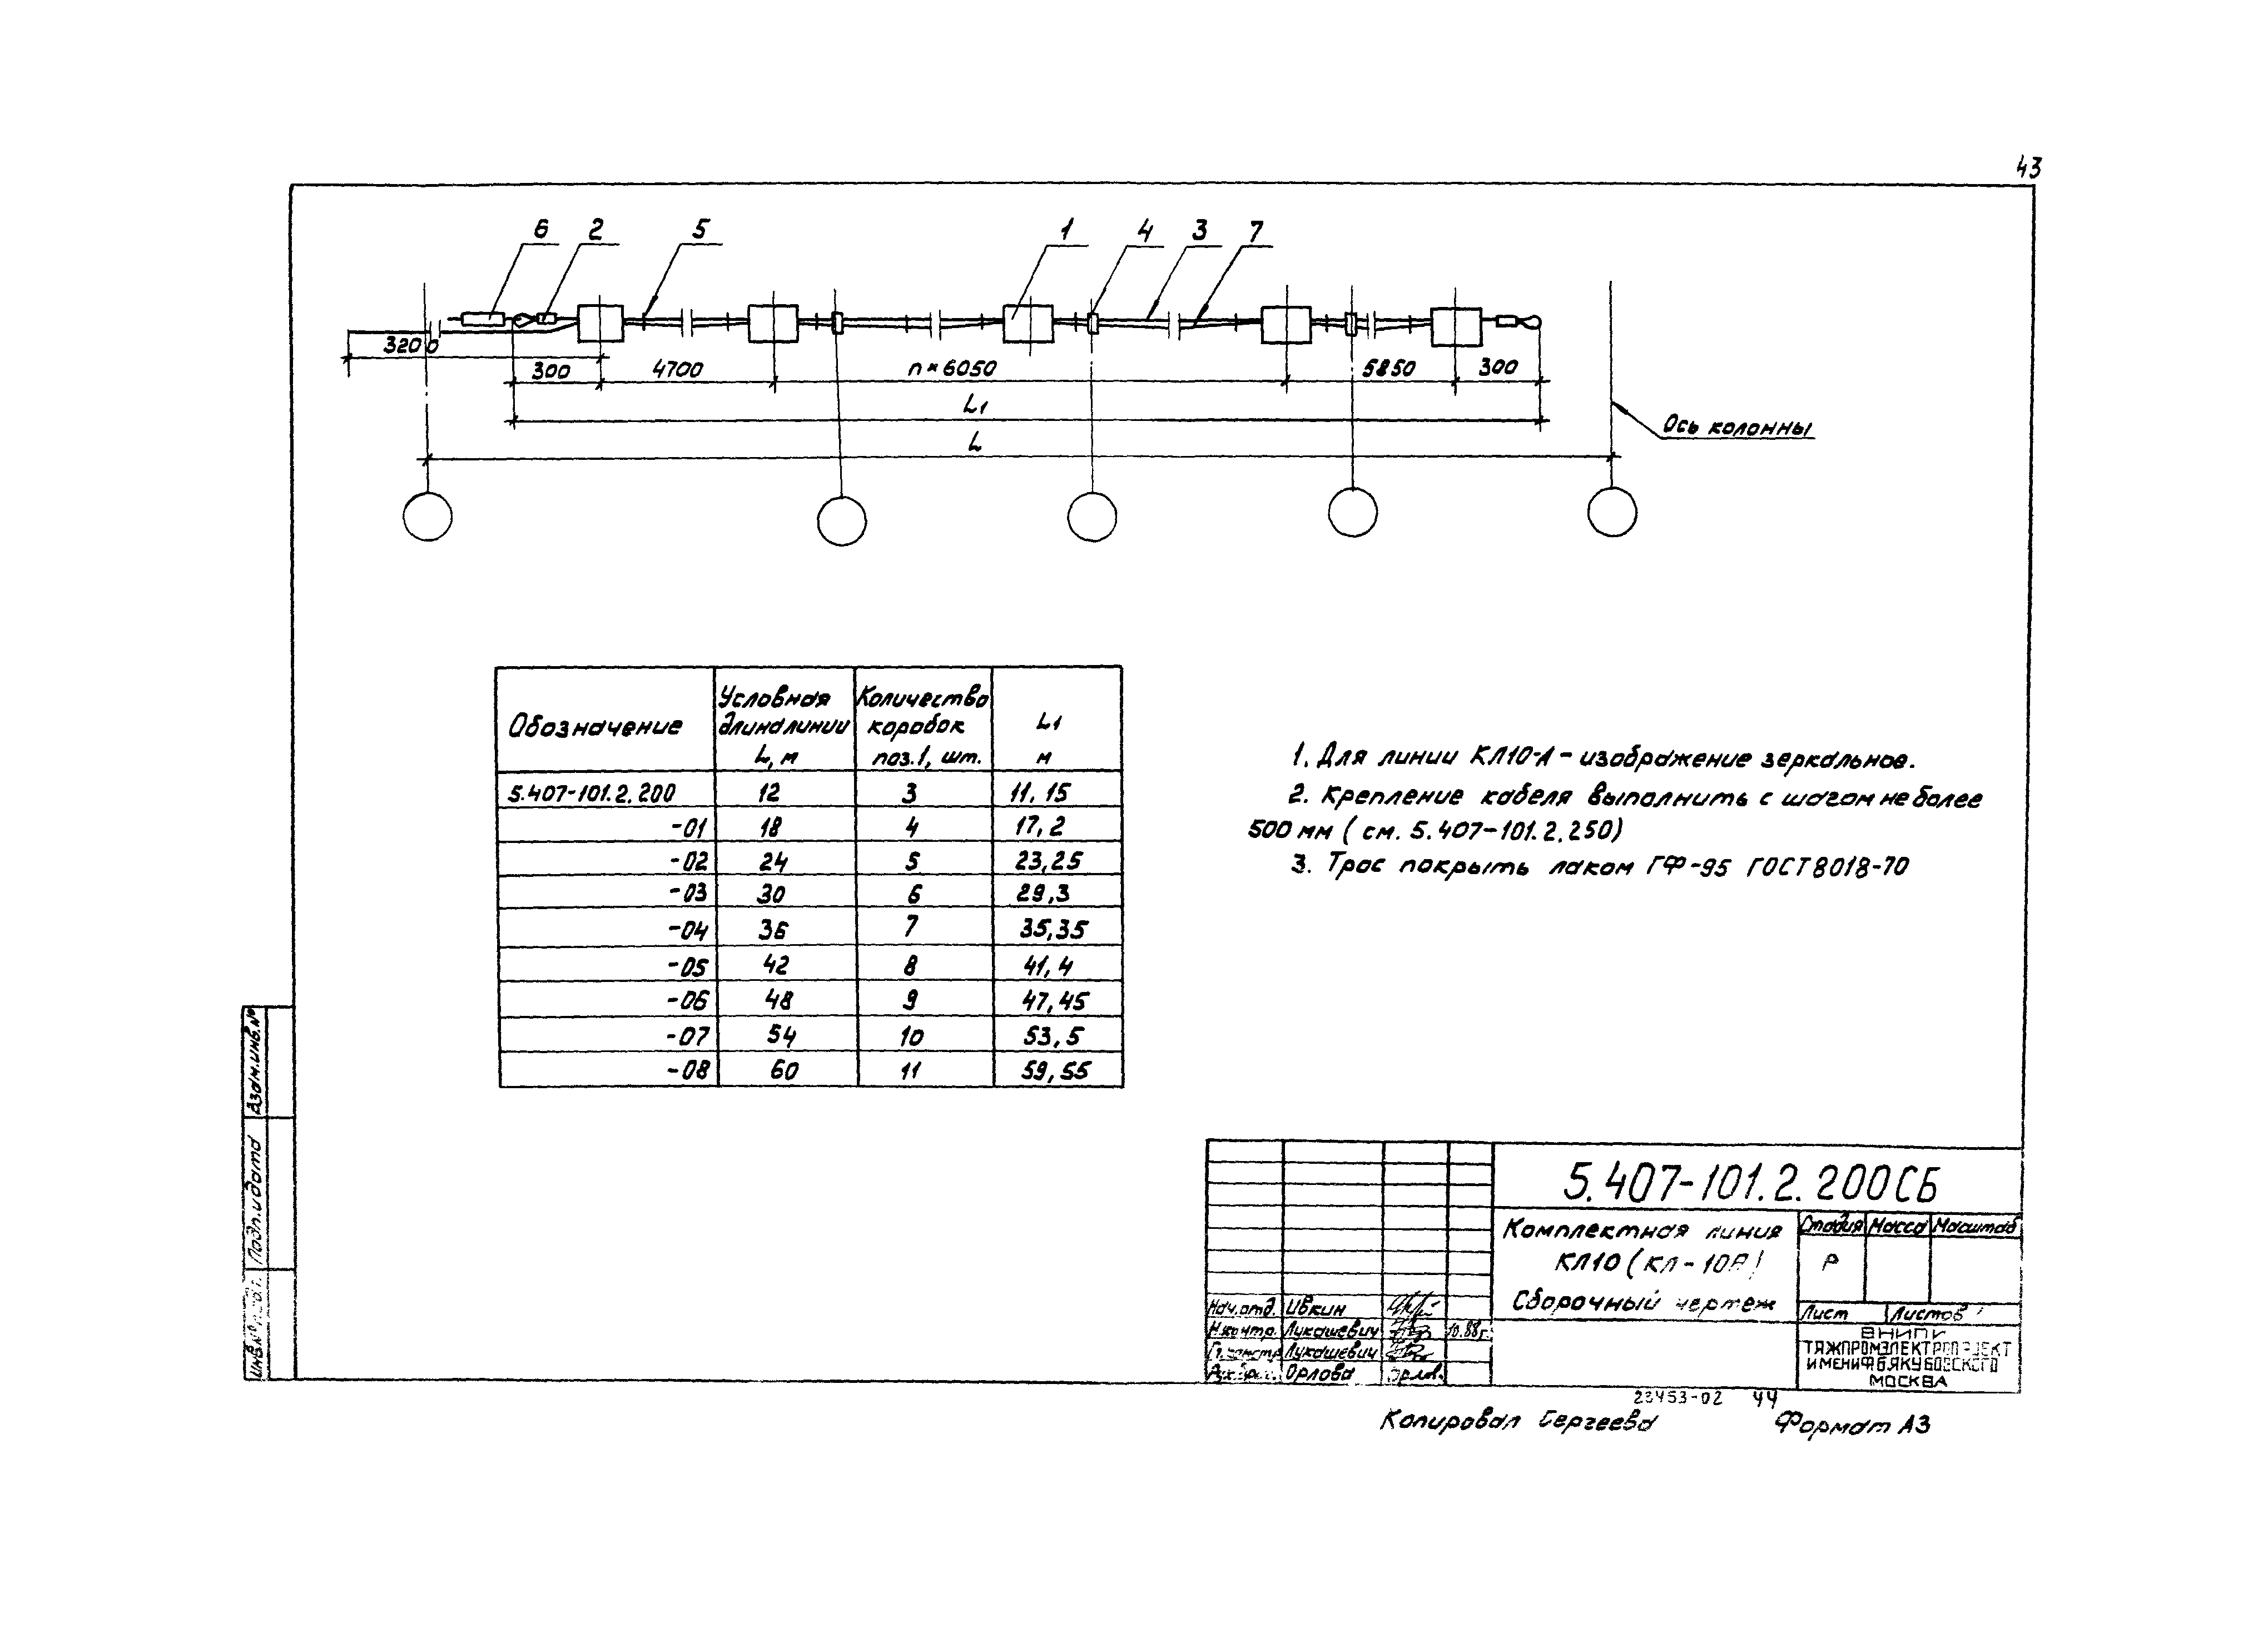 43
6 2 5 1 4 3 7
3200
300 4700 n×6050 5850 300
L1
L
Ось колонны
Обозначение Условная длина линии L, м Количество коробок поз.1, шт. L1 м
5.407-101.2.200 12 3 11,15
-01 18 4 17,2
-02 24 5 23,25
-03 30 6 29,3
-04 36 7 35,35
-05 42 8 41,4
-06 48 9 47,45
-07 54 10 53,5
-08 60 11 59,55
1. Для линии КЛ10-А - изображение зеркальное.
2. Крепление кабеля выполнить с шагом не более
500 мм (см. 5.407-101.2.250)
3. Трос покрыть лаком ГФ-95 ГОСТ 8018-70
Взам.инв.№
Подп.и дата
Инв.№
5.407-101.2.200СБ
Комплектная линия
КЛ10 (КЛ-10А)
Сборочный чертеж
Стадия Масса Масштаб
Р
Лист Листов
Нач.отд. Ивкин
Н.контр. Лукашевич 10.88г.
Гл.констр. Лукашевич
Орлова
ВНИПИ
ТЯЖПРОМЭЛЕКТРОПРОЕКТ
ИМЕНИ Ф.Б.ЯКУБОВСКОГО
МОСКВА
23453-02 44
Копировал Сергеева Формат А3